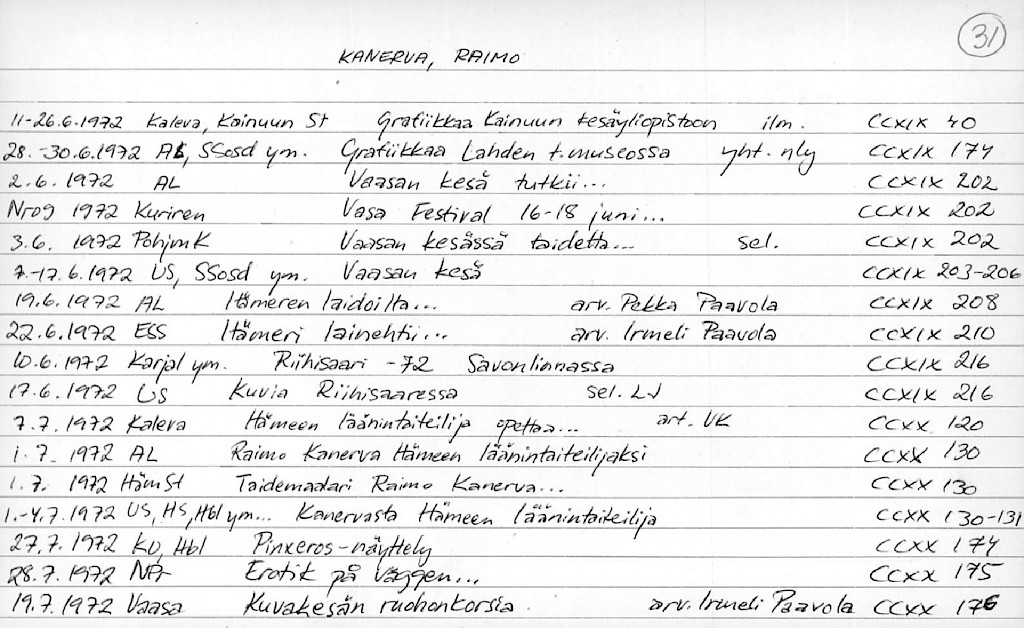 31
KANERVA, RAIMO
11-26.6.1972 Kaleva, Kainuun St Grafiikkaa Kainuun kesäyliopistoon ilm. CCXIX 40
28.-30.6.1972 AL, SSosd ym. Grafiikkaa Lahden t.museossa yht. nly CCXIX 174
2.6.1972 AL Vaasan kesä tutkii... CCXIX 202
Nro9 1972 Kuriren Vasa Festival 16-18 juni... CCXIX 202
3.6. 1972 PohjmK Vaasan kesässä taidetta... sel. CCXIX 202
7.-17.6.1972 US, SSosd ym. Vaasan kesä CCXIX 203-206
19.6.1972 AL Itämeren laidoilta... arv. Pekka Paavola CCXIX 208
22.6.1972 ESS Itämeri lainehtii... arv. Irmeli Paavola CCXIX 210
10.6.1972 Karjal ym. Riihisaari -72 Savonlinnassa CCXIX 216
17.6.1972 US Kuvia Riihisaaressa sel. LJ CCXIX 216
7.7.1972 Kaleva Hämeen läänintaiteilija opettaa... art. VK CCXX 120
1.7. 1972 AL Raimo Kanerva Hämeen läänintaiteilijaksi CCXX 130
1.7. 1972 HämSt Taidemaalari Raimo Kanerva... CCXX 130
1.-4.7.1972 US, HS, Hbl ym... Kanervasta Hämeen läänintaiteilija CCXX 130-131
27.7.1972 KU, Hbl Pinxeros-näyttely CCXX 174
28.7.1972 NPr Erotik på väggen... CCXX 175
19.7.1972 Vaasa Kuvakesän ruohonkorsia arv. Irmeli Paavola CCXX 176